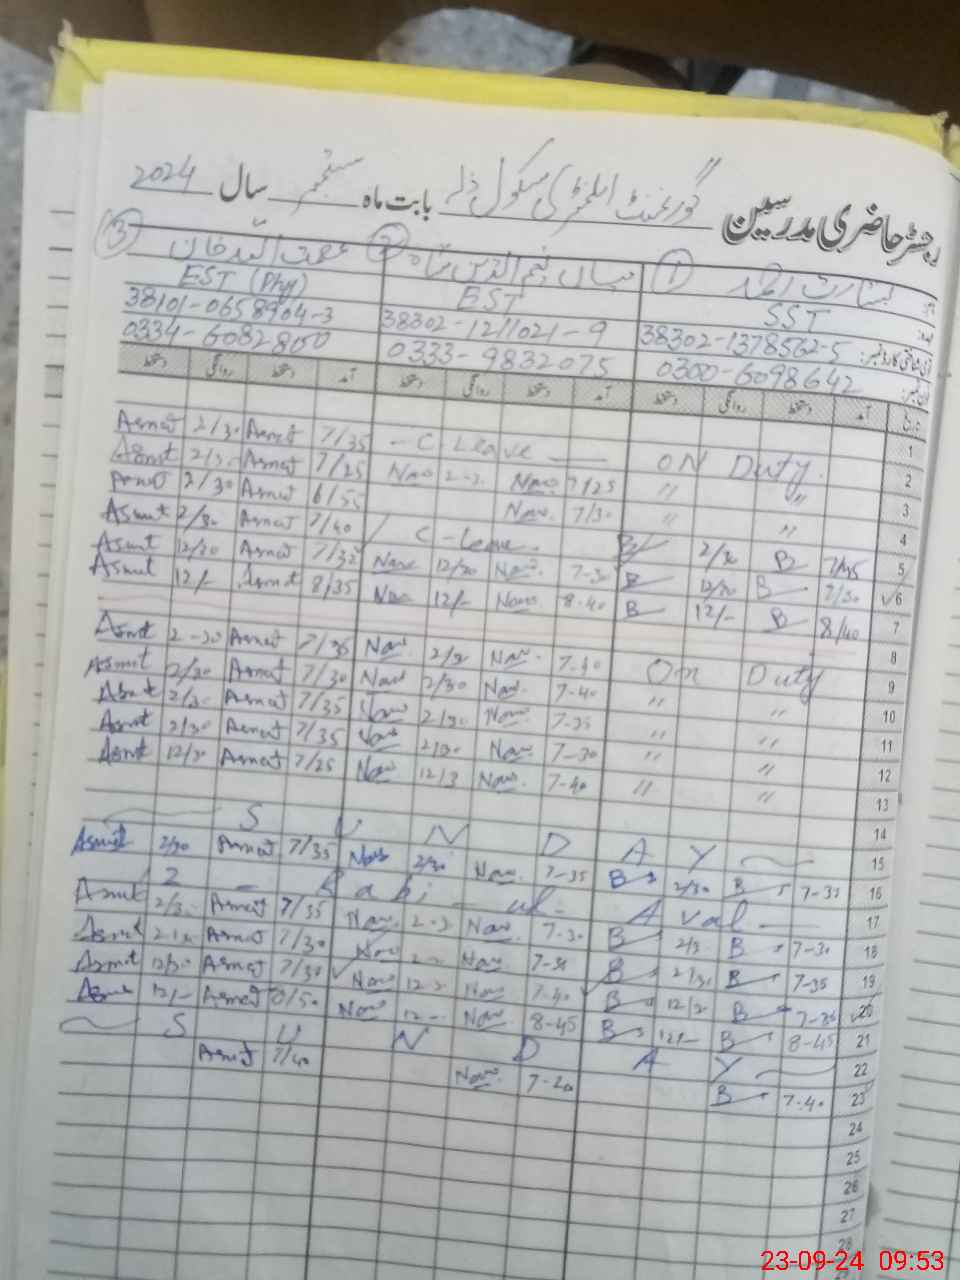 رجسٹر حاضری مدرسین گورنمنٹ ایلیمنٹری سکول بابت ماہ ستمبر سال 2024
1 بشارت احمد 2 میاں نجم الدین شاہ 3 عصمت اللہ خان
SST EST EST (Phy)
38302-1378562-5 38302-1211021-9 38101-0658904-3
0300-6098642 0333-9832075 0334-6082800
تاریخ آمد دستخط روانگی دستخط آمد دستخط روانگی دستخط آمد دستخط روانگی دستخط
Asmat 2/30 Asmat 7/35 - C Leave ON Duty. 1
Asmat 2/30 Asmat 7/25 Naw 2-30 Naw 7/25 〃 〃 2
Asmat 2/30 Asmat 6/55 Naw. 7/30 〃 〃 3
Asmat 2/30 Asmat 7/40 C-leave. B 2/30 B 7/45 4
Asmat 12/30 Asmat 7/35 Naw 12/30 Naw 7-30 B 12/30 B 7/30 5
Asmat 12/- Asmat 8/35 Naw 12/- Naw. 8-40 B 12/- B 8/40 6
7
Asmat 2-30 Asmat 7/35 Naw. 2/30 Naw. 7-40 On Duty 8
Asmat 2/30 Asmat 7/30 Naw 2/30 Naw. 7-40 〃 〃 9
Asmat 2/30 Asmat 7/35 Naw 2/30 Naw. 7-35 〃 〃 10
Asmat 2/30 Asmat 7/35 Naw 2/30 Naw. 7-30 〃 〃 11
Asmat 12/30 Asmat 7/25 Naw 12/3 Naw. 7-40 〃 〃 12
13
S U N D A Y 14
Asmat 2/30 Asmat 7/35 Naw 2/30 Naw. 7-35 B 2/30 B 7-35 15
Rabi-ul-Aval 16
Asmat 2/30 Asmat 7/35 Naw. 2-30 Naw. 7-30 B 2/30 B 7-30 17
Asmat 2/30 Asmat 7/30 Naw 2-30 Naw 7-30 B 2/30 B 7-35 18
Asmat 12/30 Asmat 7/30 Naw 12-30 Naw 7-40 B 12/30 B 7-35 19
Asmat 12/- Asmat Naw 12- Naw. 8-45 B 12/- B 8-45 20
S U N D A Y 21
Asmat 7/40 Naw. 7-20 B 7-40 22
23
24
25
26
27
28
23-09-24 09:53